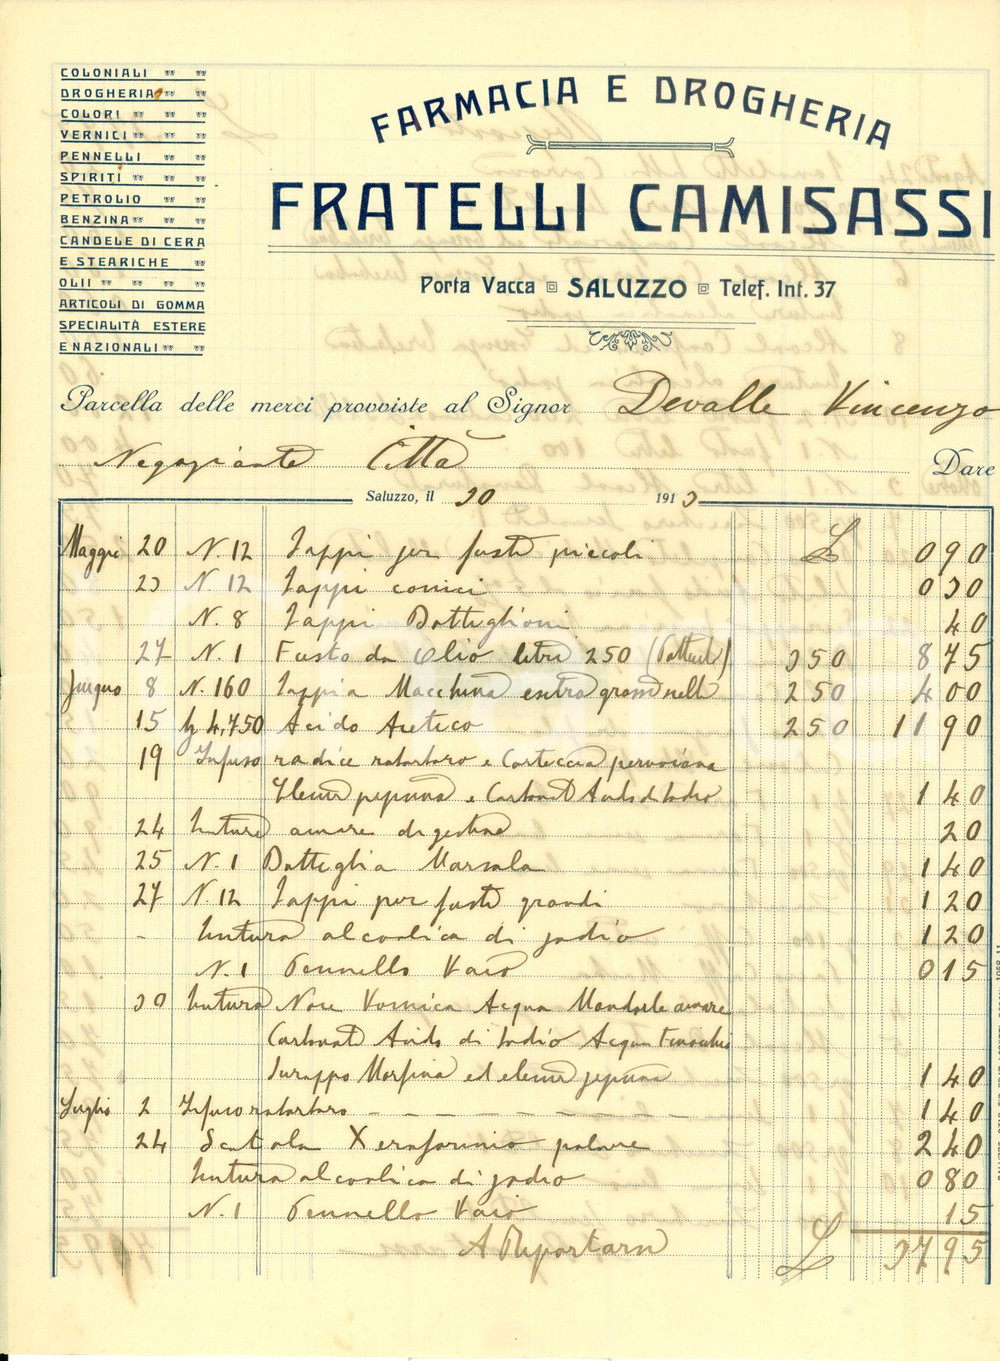 COLONIALI " "
DROGHERIA " "
COLORI " " "
VERNICI " " "
PENNELLI " "
SPIRITI " " "
PETROLIO " "
BENZINA " " "
CANDELE DI CERA
E STEARICHE "
OLII " " " "
ARTICOLI DI GOMMA
SPECIALITÀ ESTERE
E NAZIONALI " "
FARMACIA E DROGHERIA
FRATELLI CAMISASSI
Porta Vacca SALUZZO Telef. Int. 37
Parcella delle merci provviste al Signor Devalle Vincenzo
Negoziante Città Dare
Saluzzo, il 30 1913
Maggio 20 N. 12 Tappi per fusti piccoli L 0 90
23 N. 12 Tappi conici 0 30
N. 8 Tappi Bottiglioni 40
27 N. 1 Fusto da Olio litri 250 350 8 75
Giugno 8 N. 160 Tappi a Macchina extra 250 4 00
15 Kg 4,750 Acido Acetico 250 11 90
19 Infuso radice ratartaro e Corteccia peruviana
e Carbonato Acido di Sodio 1 40
24 tintura amare digestive 20
25 N. 1 Bottiglia Marsala 1 40
27 N. 12 Tappi per fusti grandi 1 20
- tintura alcoolica di jodio 1 20
N. 1 Pennello Vaio 0 15
30 tintura Noce Vomica Acqua Mandorle amare
Carbonato Acido di Sodio Acqua Finocchio
Siroppo Morfina ed 1 40
Luglio 2 Infuso ratartaro 1 40
24 Scatola Xeroformio polvere 2 40
tintura alcoolica di jodio 0 80
N. 1 Pennello Vaio 15
A Riportarsi L 37 95